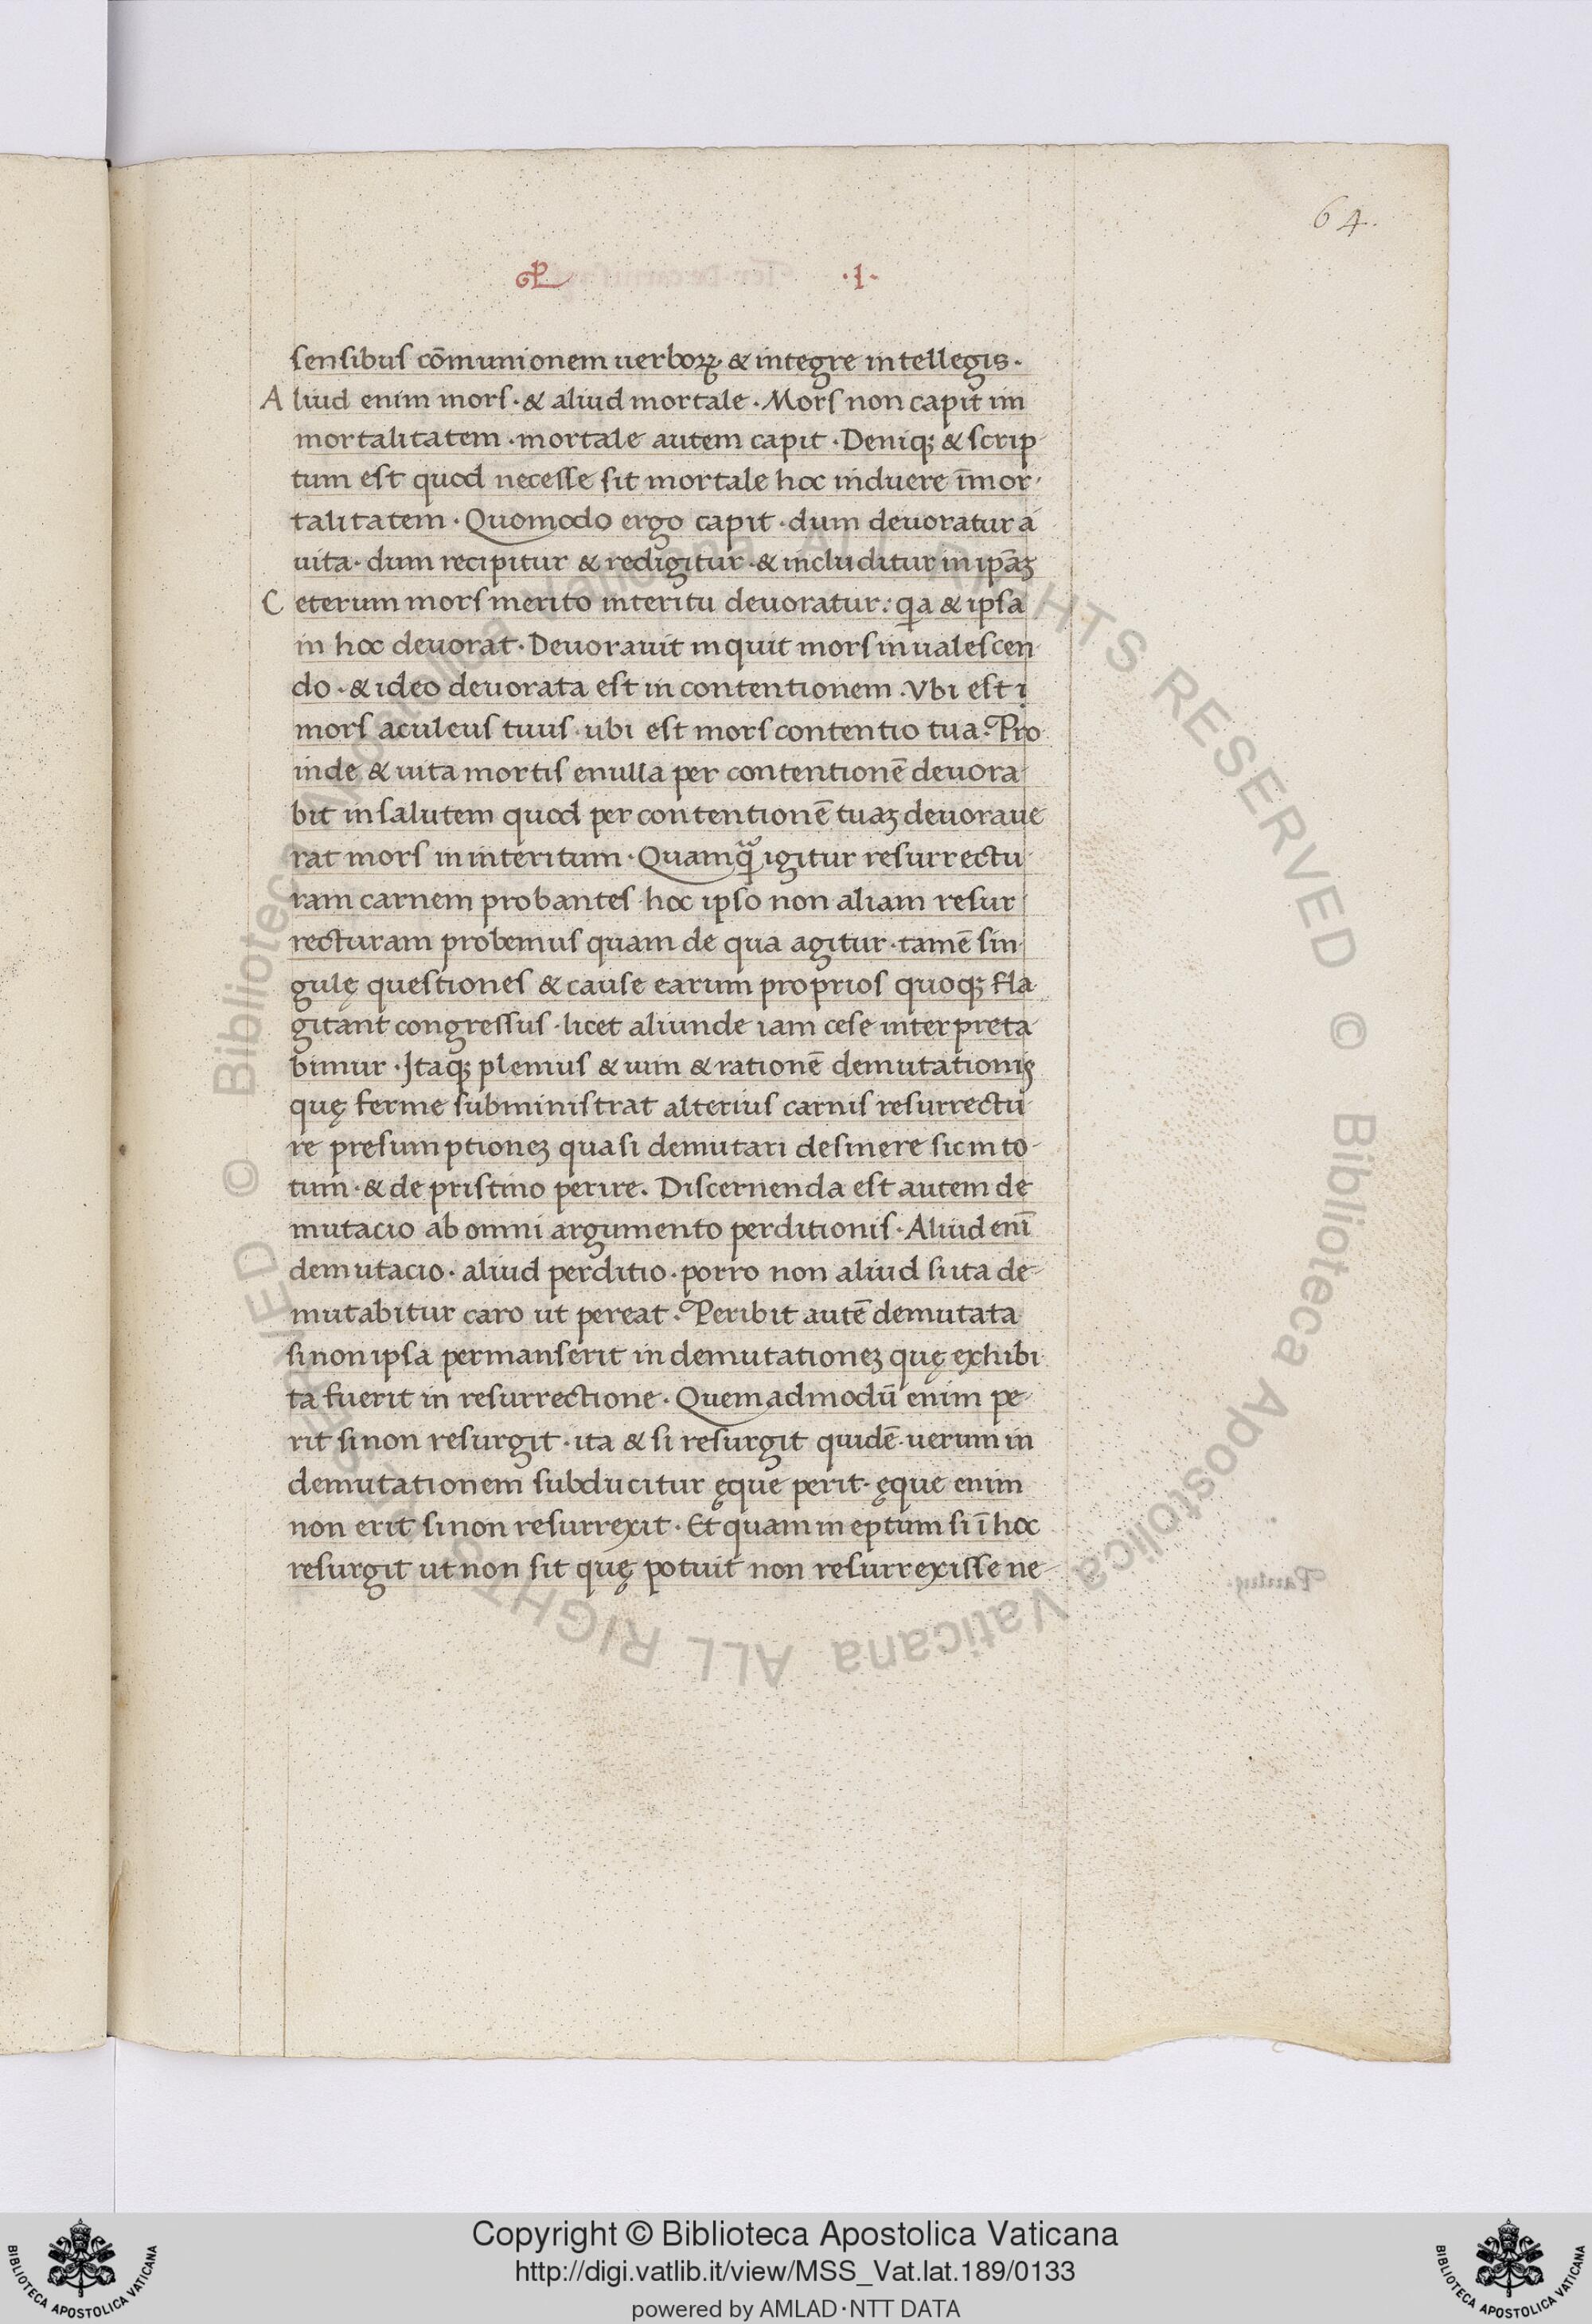 64.
·I·
senſibuſ cōmunionem uerboꝝ & integre intellegis·
Aliud enim morſ· & aliud mortale· Morſ non capit im
mortalitatem· mortale autem capit· Deniqꝫ & ſcrip
tum eſt quod neceſſe ſit mortale hoc induere īmor
talitatem· Quomodo ergo capit· dum deuoratur a
uita· dum recipitur & redigitur· & includitur in ip̄aꝫ
Ceterum morſ merito interitu deuoratur: qa & ipſa
in hoc deuorat· Deuorauit inquit morſ inualeſcen
do· & ideo deuorata eſt in contentionem· Vbi eſt i
morſ aculeuſ tuuſ· ubi eſt morſ contentio tua? Pro
inde & uita mortiſ enulla per contentionē deuora
bit in ſalutem quod per contentionē tuaꝫ deuoraue
rat morſ in interitum· Quamqᷓ igitur reſurrectu
ram carnem probanteſ hoc ipſo non aliam reſur
recturam probemuſ quam de qua agitur· tamē ſin
gulę queſtioneſ & cauſe earum proprioſ quoqꝫ fla
gitant congreſſuſ· licet aliunde iam ceſe interpreta
bimur· Itaqꝫ plemuſ & uim & rationē demutationis
quę ferme ſubminiſtrat alteriuſ carniſ reſurrectu
re preſumptioneꝫ quaſi demutari deſinere ſic in to-
tum· & de priſtino perire. Diſcernenda eſt autem de
mutacio ab omni argumento perditioniſ· Aliud enī
demutacio· aliud perditio· porro non aliud ſi ita de-
mutabitur caro ut pereat· Peribit autē demutata
ſi non ipſa permanſerit in demutationeꝫ quę exhibi
ta fuerit in reſurrectione· Quemadmodū enim pe
rit ſi non reſurgit· ita & ſi reſurgit quidē· uerum in
demutationem ſubducitur ęque perit· ęque enim
non erit ſi non reſurrexit· Et quam ineptum ſi ī hoc
reſurgit ut non ſit quę potuit non reſurrexiſſe ne-
© Biblioteca Apostolica Vaticana ALL RIGHTS RESERVED © Biblioteca Apostolica Vaticana ALL RIGHTS RESERVED
Copyright © Biblioteca Apostolica Vaticana
http://digi.vatlib.it/view/MSS_Vat.lat.189/0133
powered by AMLAD·NTT DATA
BIBLIOTECA APOSTOLICA VATICANA
BIBLIOTECA APOSTOLICA VATICANA